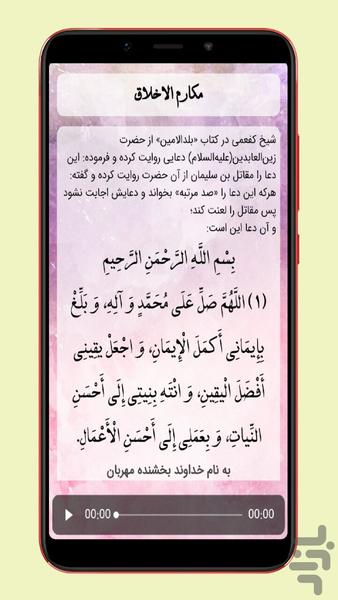 مكارم الاخلاق
شیخ کفعمی در کتاب «بلدالامین» از حضرت
زین‌العابدین(علیه‌السلام) دعایی روایت کرده و فرموده: این
دعا را مقاتل بن سلیمان از آن حضرت روایت کرده و گفته:
هرکه این دعا را «صد مرتبه» بخواند و دعایش اجابت نشود
پس مقاتل را لعنت کند؛
و آن دعا این است:
بِسْمِ اللَّهِ الرَّحْمَنِ الرَّحِيمِ
(۱) اللَّهُمَّ صَلِّ عَلَى مُحَمَّدٍ وَ آلِهِ، وَ بَلِّغْ
بِإِيمَانِي أَكْمَلَ الْإِيمَانِ، وَ اجْعَلْ يَقِينِي
أَفْضَلَ الْيَقِينِ، وَ انْتَهِ بِنِيَّتِي إِلَى أَحْسَنِ
النِّيَّاتِ، وَ بِعَمَلِي إِلَى أَحْسَنِ الْأَعْمَالِ.
به نام خداوند بخشنده مهربان
00:00 00:00